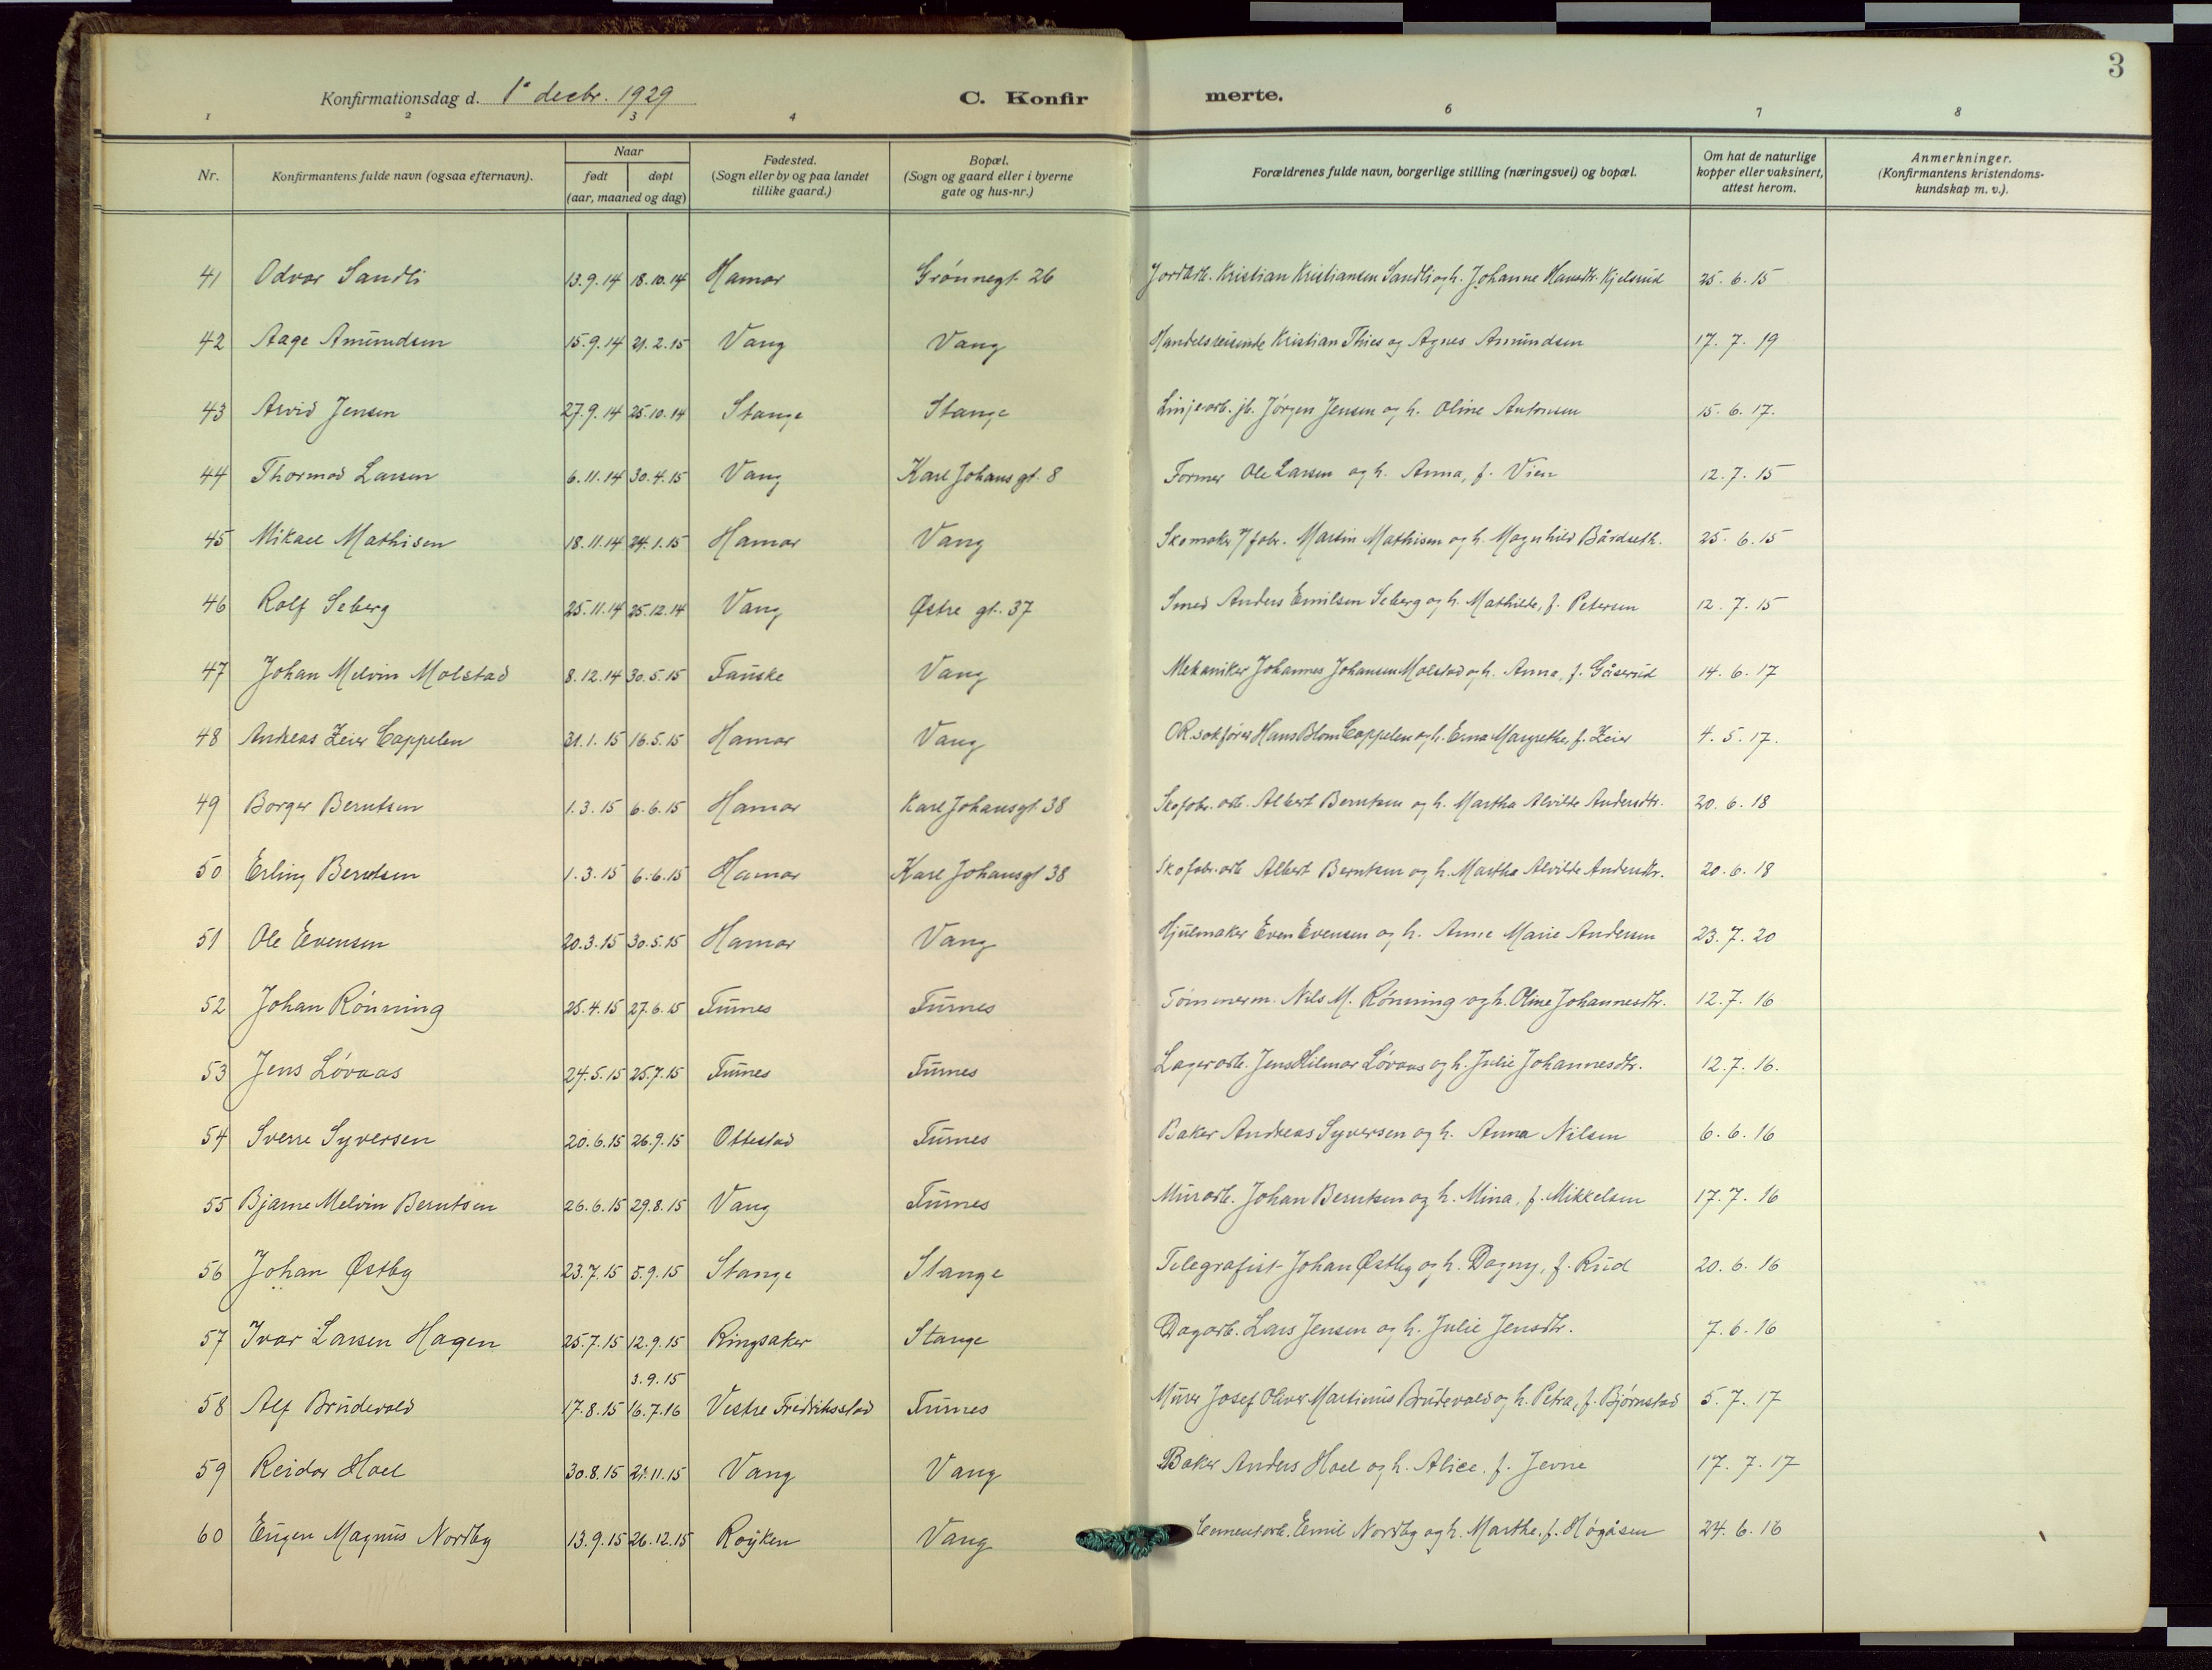 3
Konfirmationsdag d. 1ᵉ decbr. 1929
C. Konfirmerte.
1 2 3 4 6 7 8
Nr. Konfirmantens fulde navn (ogsaa efternavn). Naar født døpt (aar, maaned og dag) Fødested. (Sogn eller by og paa landet tillike gaard.) Bopæl. (Sogn og gaard eller i byerne gate og hus-nr.) Forældrenes fulde navn, borgerlige stilling (næringsvei) og bopæl. Om hat de naturlige kopper eller vaksinert, attest herom. Anmerkninger. (Konfirmantens kristendoms-kundskap m. v.).
41 Odvar Sandli 13.9.14 18.10.14 Hamar Grönnegt. 26 Jordbrb. Kristian Kristiansen Sandli og h. Johanne Hansdtr. Kjelsrud 25.6.15
42 Aage Amundsen 15.9.14 21.2.15 Vang Vang Handelsreisende Kristian Thies og Agnes Amundsen 17.7.19
43 Arvid Jensen 27.9.14 25.10.14 Stange Stange Linjearb. jb. Jörgen Jensen og h. Oline Antonsen 15.6.17.
44 Thormod Larsen 6.11.14 30.4.15 Vang Karl Johans gt. 8 Former Ole Larsen og h. Anna, f. Vien 12.7.15
45 Mikael Mathisen 18.11.14 24.1.15 Hamar Vang Skomaker v/fabr. Martin Mathisen og h. Magnhild Bårdseth. 25.6.15
46 Rolf Seberg 25.11.14 25.12.14 Vang Østre gt. 37 Smed Anders Emilsen Seberg og h. Mathilde, f. Petersen 12.7.15
47 Johan Melvin Molstad 8.12.14 30.5.15 Fauske Vang Mekaniker Johannes Johansen Molstad og h. Anna, f. Gåserud 14.6.17
48 Andreas Zeier Cappelen 31.1.15 16.5.15 Hamar Vang ORsakfører Hans Blom Cappelen og h. Erna Margrethe, f. Zeier 4.5.17.
49 Borger Berntsen 1.3.15 6.6.15 Hamar Karl Johansgt 38 Skofabr. arb. Albert Berntsen og h. Martha Alvilde Andersdtr. 20.6.18
50 Erling Berntsen 1.3.15 6.6.15 Hamar Karl Johansgt 38 Skofabr. arb Albert Berntsen og h. Martha Alvilde Andersdtr. 20.6.18
51 Ole Evensen 20.3.15 30.5.15 Hamar Vang Hjulmaker Even Evensen og h. Anne Marie Andersen 23.7.20
52 Johan Rönning 25.4.15 27.6.15 Furnes Furnes Tömmerm. Nils M. Rönning og h. Oline Johannesdtr. 12.7.16
53 Jens Lövaas 24.5.15 25.7.15 Furnes Furnes Lagerarb. Jens Hilmar Lövaas og h. Julie Johannesdtr. 12.7.16.
54 Sverre Syversen 20.6.15 26.9.15 Ottestad Furnes Baker Andreas Syversen og h. Anna Nilsen 6.6.16
55 Bjarne Melvin Berntsen 26.6.15 29.8.15 Vang Furnes Murarb. Johan Berntsen og h. Mina, f. Mikkelsen 17.7.16
56 Johan Østby 23.7.15 5.9.15 Stange Stange Telegrafist Johan Østby og h. Dagny, f. Rud 20.6.16
57 Ivar Larsen Hagen 25.7.15 12.9.15 Ringsaker Stange Dagarb. Lars Jensen og h. Julie Jensdtr. 7.6.16
3.9.15
58 Alf Brudevold 17.8.15 16.7.16 Vestre Fredriksstad Furnes Murer Josef Oliver Martinius Brudevold og h. Petra, f. Bjørnstad 5.7.17
59 Reidar Hoel 30.8.15 21.11.15 Vang Vang Baker Anders Hoel og h. Alice, f. Jevne 17.7.17
60 Eugen Magnus Nordby 13.9.15 26.12.15 Röyken Vang Cementarb. Emil Nordby og h. Marthe, f. Högåsen 24.6.16